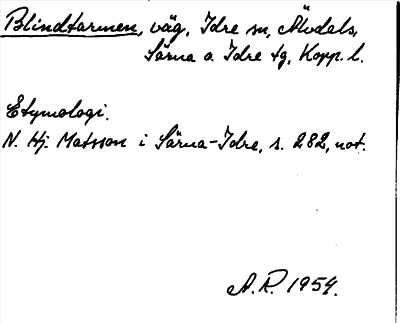 Blindtarmen, väg, Idre sn, Älvdals,
Särna o. Idre tg, Kopp. l.
Etymologi.
N. Hj. Matsson i Särna-Idre, s. 282, not.
A.R. 1954.